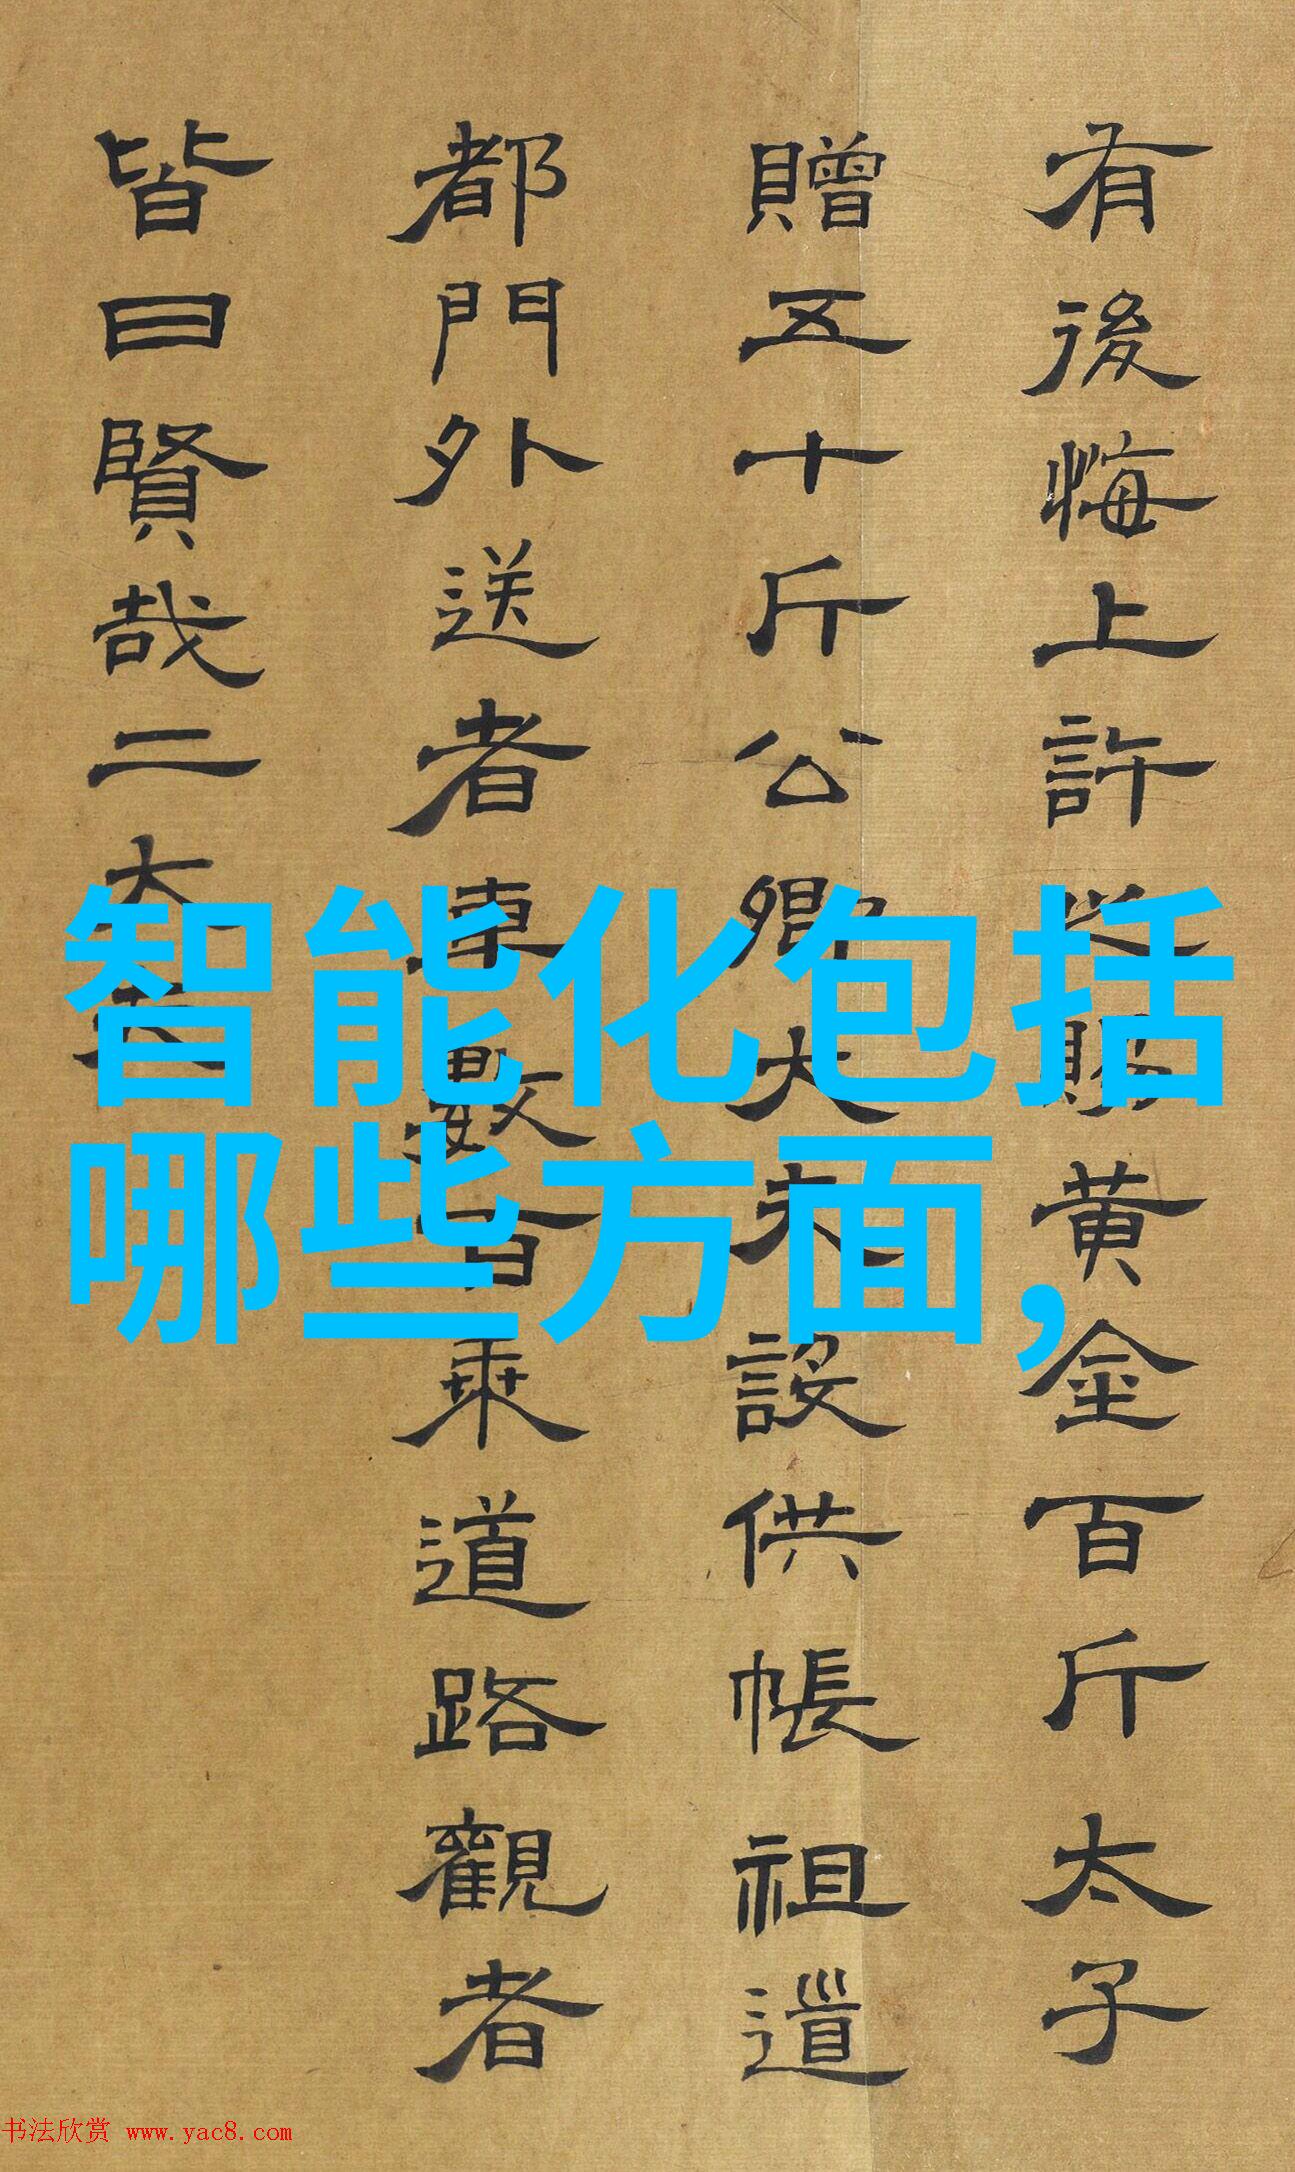 有後悔上許之賜黄金百斤太子
贈五十斤公卿大夫設供帳祖道
都門外送者車數百乘道路觀者
皆曰賢哉二大夫
智能化包括
哪些方面,
书法欣赏 www.yac8.com